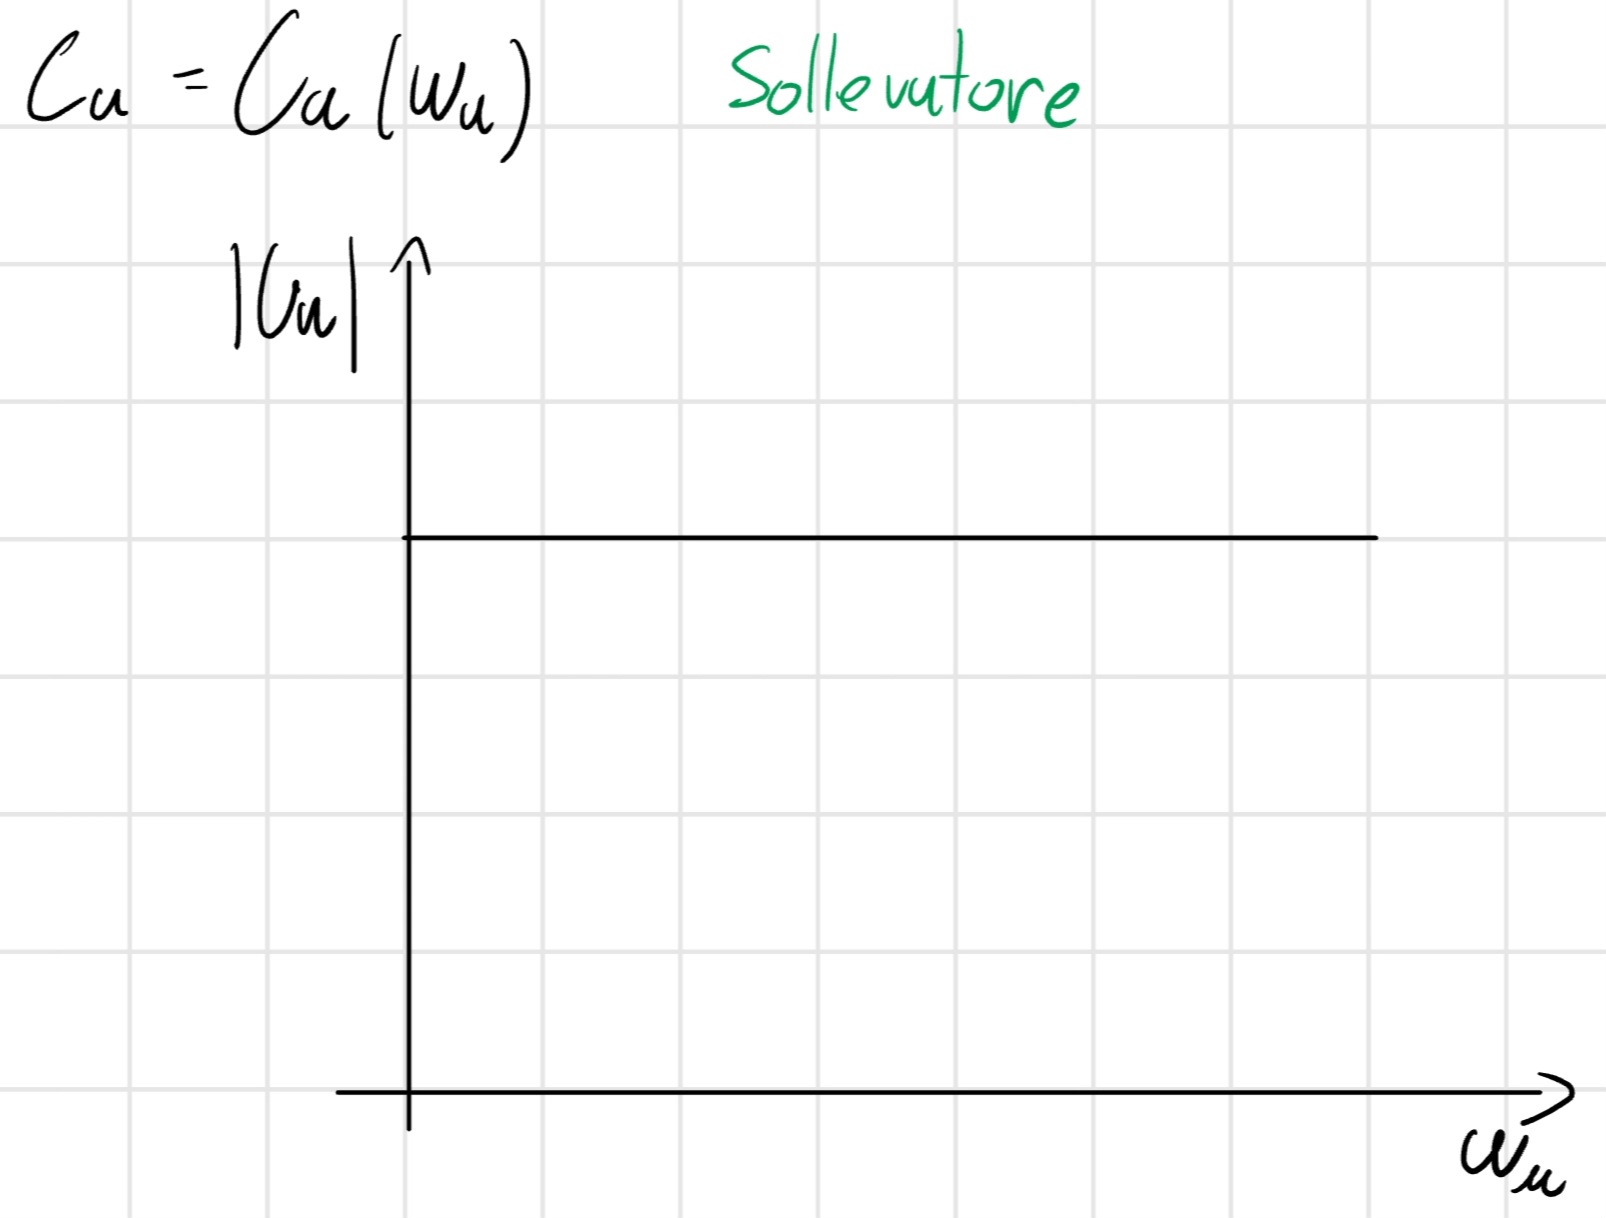 Cu = Cu (ωu) Sollevatore
|Cu|
ωu